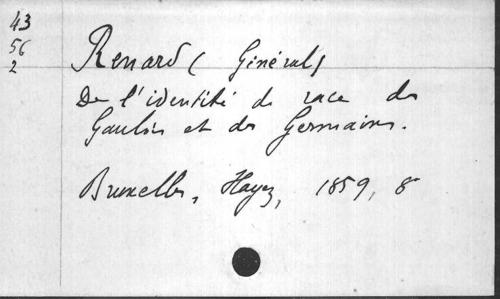 43
56
2
Renard (Général)
De l'identité de race des
Gaulois et des Germains.
Bruxelles, Hayez, 1859, 8°